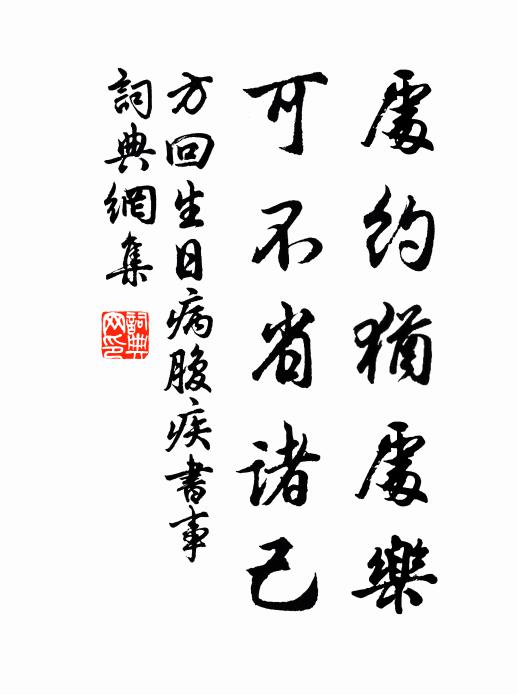 處約猶處樂
可不省諸己
方回生日病腹疾書事
詞典網集
詞典網印